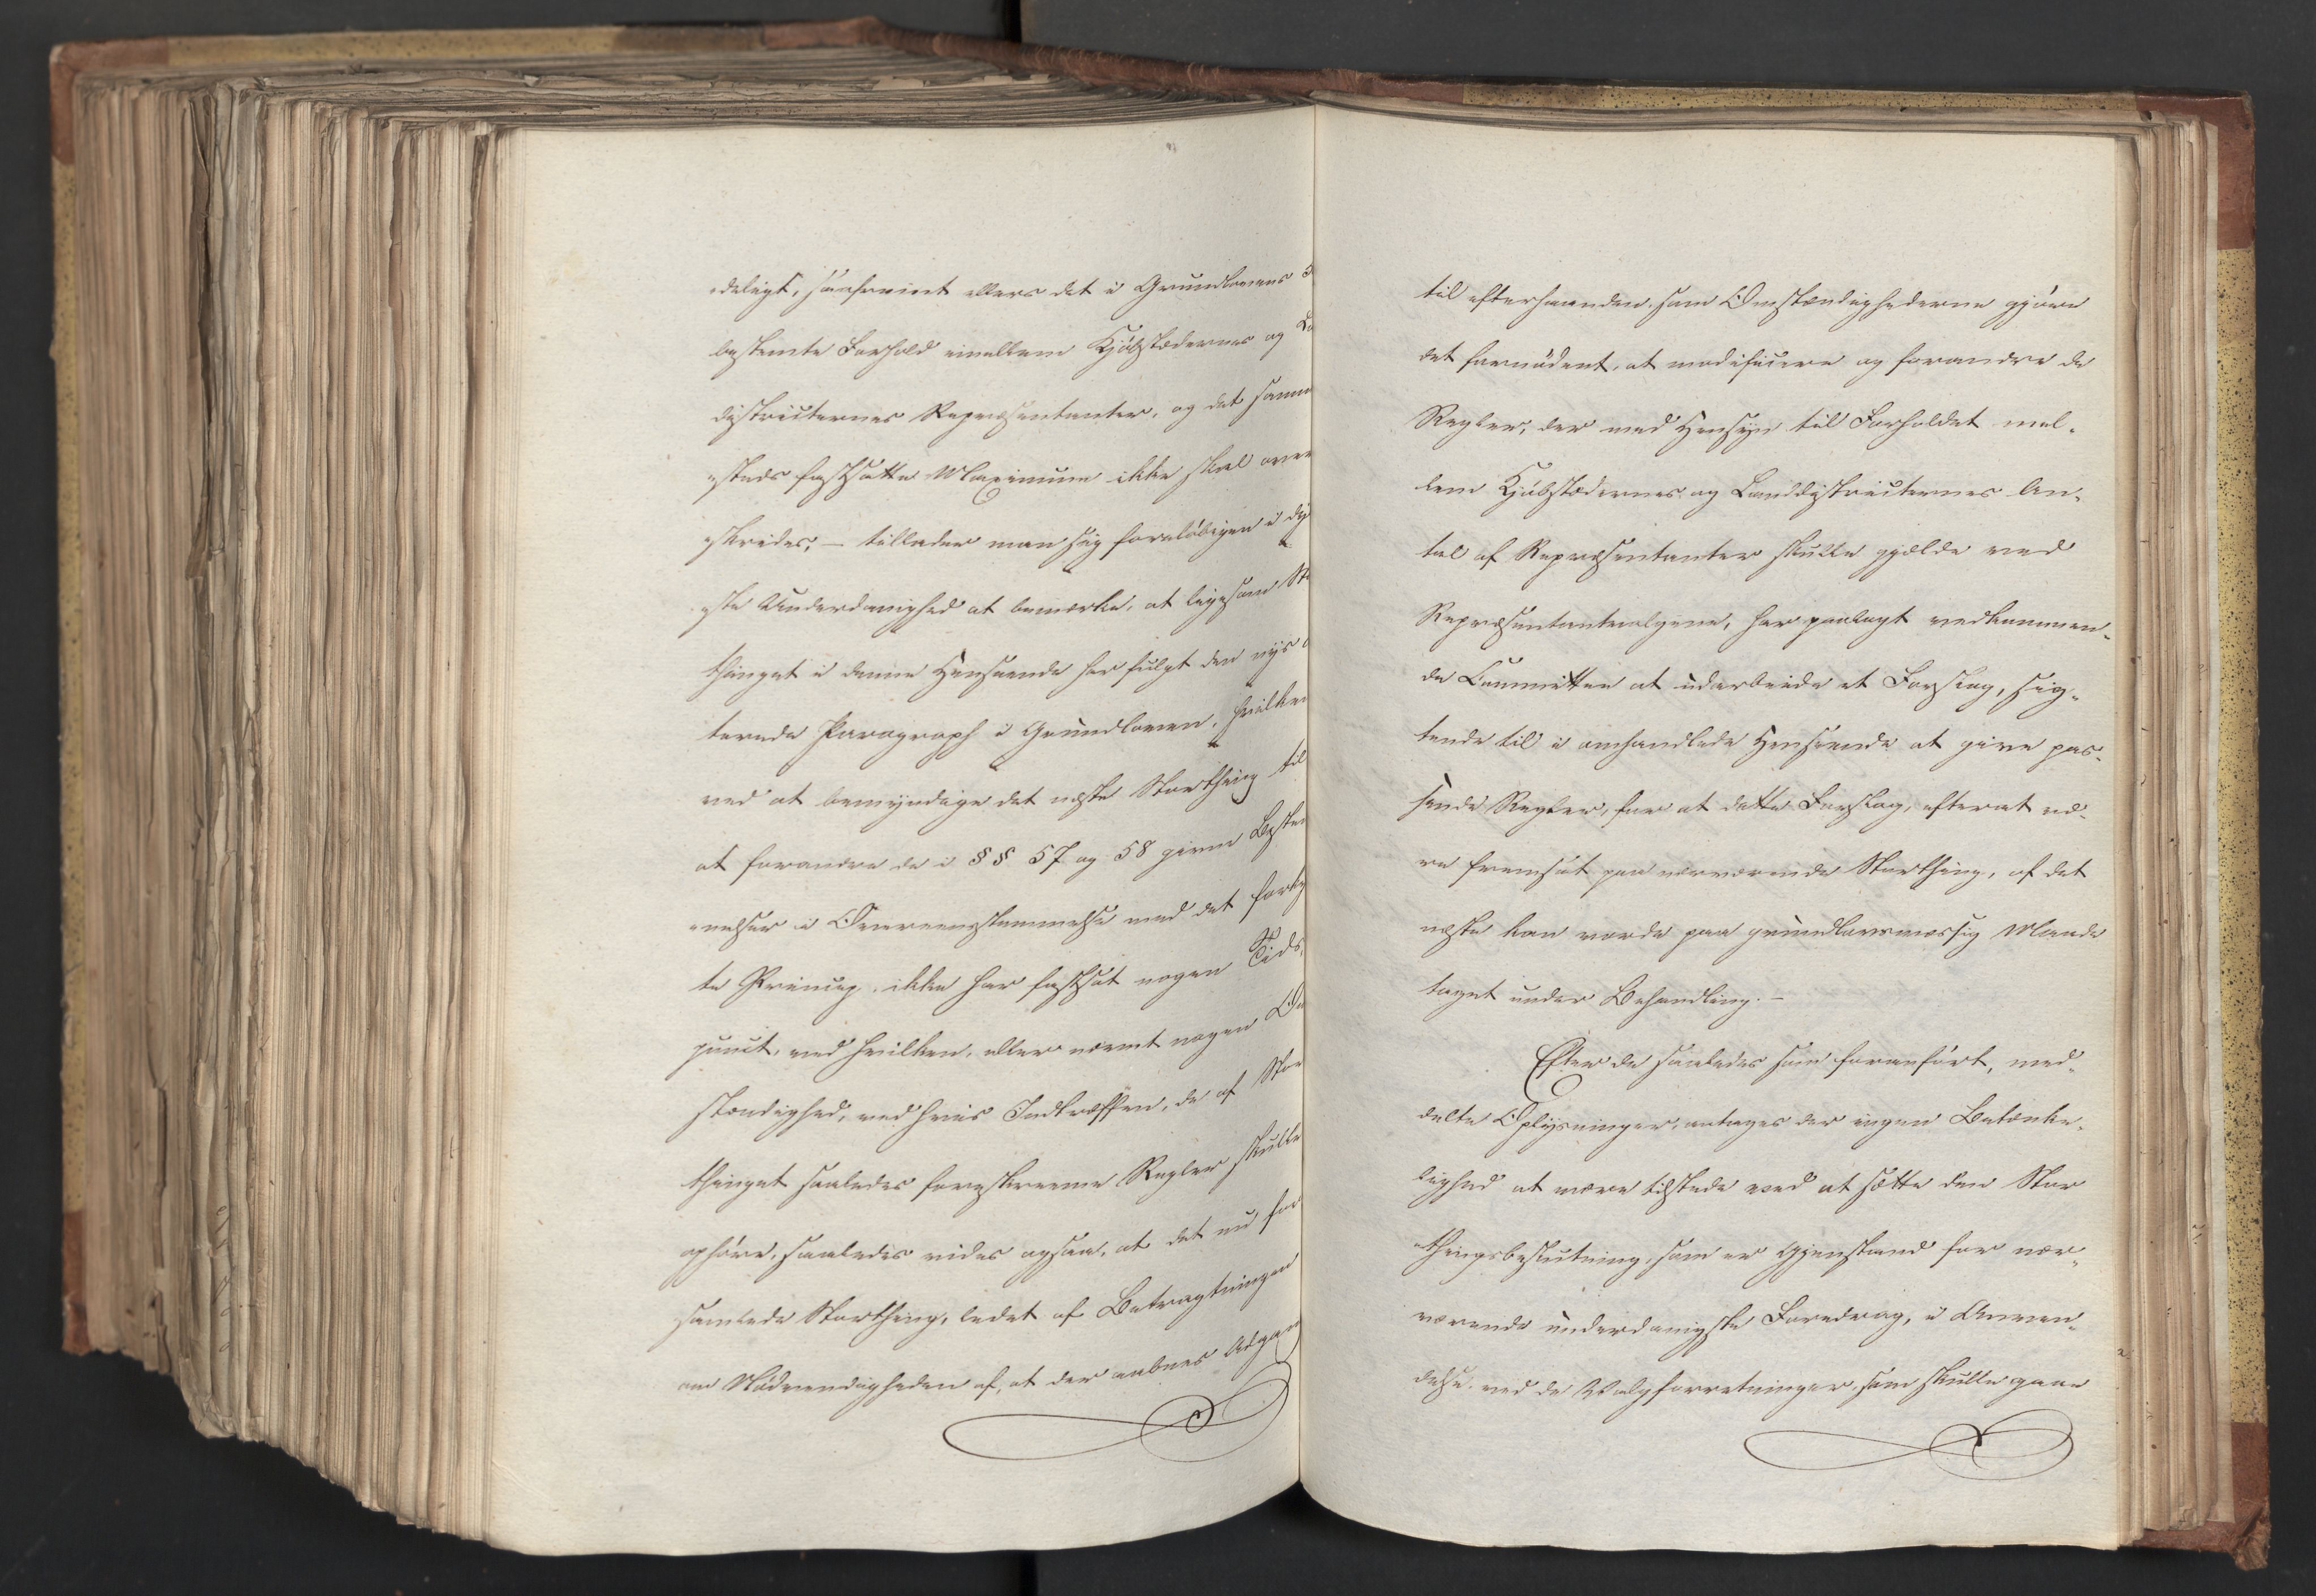 deligt, saafremt ellers det i Grundlovens
bestemte Forhold imellem Kjøbstædernes og
districternes Repræsentanter, og det samme
steds fastsatte Maximum ikke skal over
skrides, – tillader man sig foreløbigen i dy
ste Underdanighed at bemærke, at ligesom St
thinget i denne Henseende har fulgt den nys
terede Paragraph i Grundloven, hvilken
ved at bemyndige det næste Storthing til
at forandre de i §§ 57 og 58 givne Bestem
melser i Overeensstemmelse med det
te Princip, ikke har fastsat nogen Tids
punct, ved hvilken, eller nævnt nogen Om
stændighed, ved hvis Indtræffen, de af Stor
thinget saaledes foreskrevne Regler skulle
ophøre, saaledes vides ogsaa, at det nu for
samlede Storthing, ledet af Betragtningen
om Nødvendigheden af, at der aabnes Adgang
til efterhaanden, som Omstændighederne gjøre
det fornødent, at modificere og forandre de
Regler, der med Hensyn til Forholdet mel„
lem Kjøbstædernes og Landdistricternes An„
tal af Repræsentanter skulle gjælde ved
Repræsentantvalgene, har paalagt vedkommen„
de Committee at udarbeide et Forslag, sig„
tende til i omhandlede Henseende at give pas„
sende Regler, for at dette Forslag, efterat væ„
re fremsat paa nærværende Storthing, af det
næste kan vorde paa grundlovmæssig Maade
taget under Behandling. –
Efter de saaledes som foranført, med„
delte Oplysninger, antages der ingen Betænke„
lighed at være tilstede ved at sætte den Stor
thingsbeslutning, som er Gjenstand for nær„
værende underdanigste Foredrag, i Anven„
delse ved de Valgforretninger, som skulle gaae